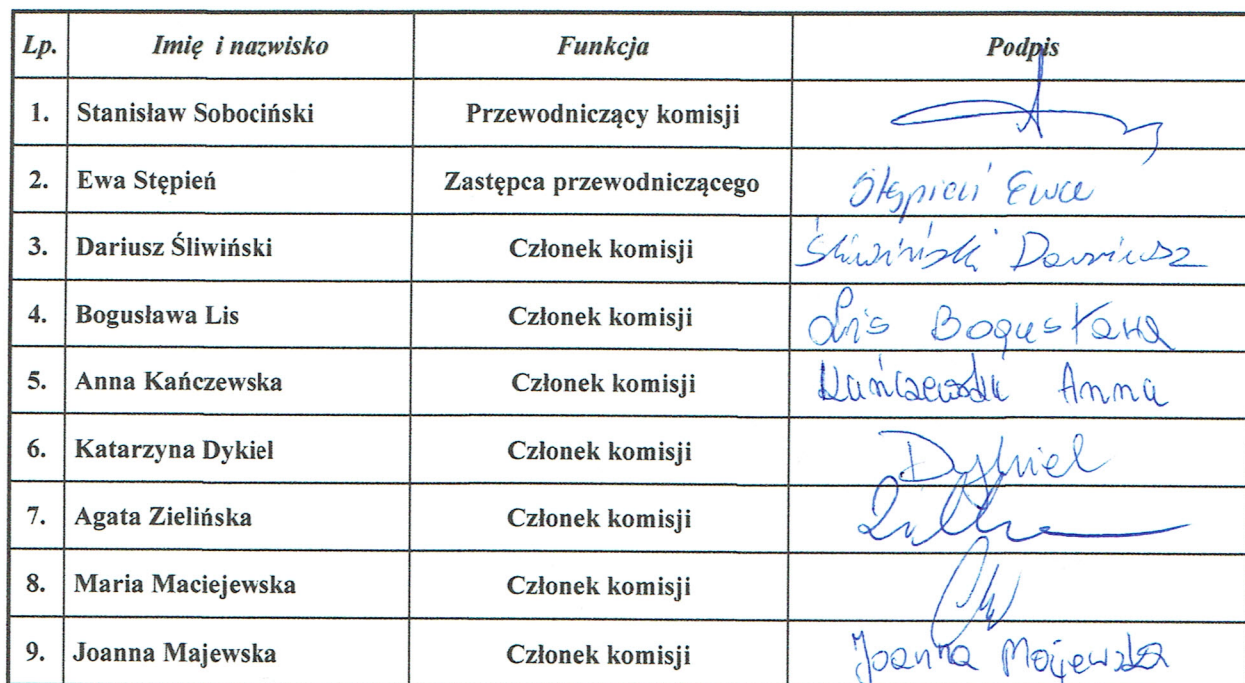 Lp. Imię i nazwisko Funkcja Podpis
1. Stanisław Sobociński Przewodniczący komisji
2. Ewa Stępień Zastępca przewodniczącego Stępień Ewa
3. Dariusz Śliwiński Członek komisji Śliwiński Dariusz
4. Bogusława Lis Członek komisji Lis Bogusława
5. Anna Kańczewska Członek komisji Kańczewska Anna
6. Katarzyna Dykiel Członek komisji Dykiel
7. Agata Zielińska Członek komisji
8. Maria Maciejewska Członek komisji
9. Joanna Majewska Członek komisji Joanna Majewska